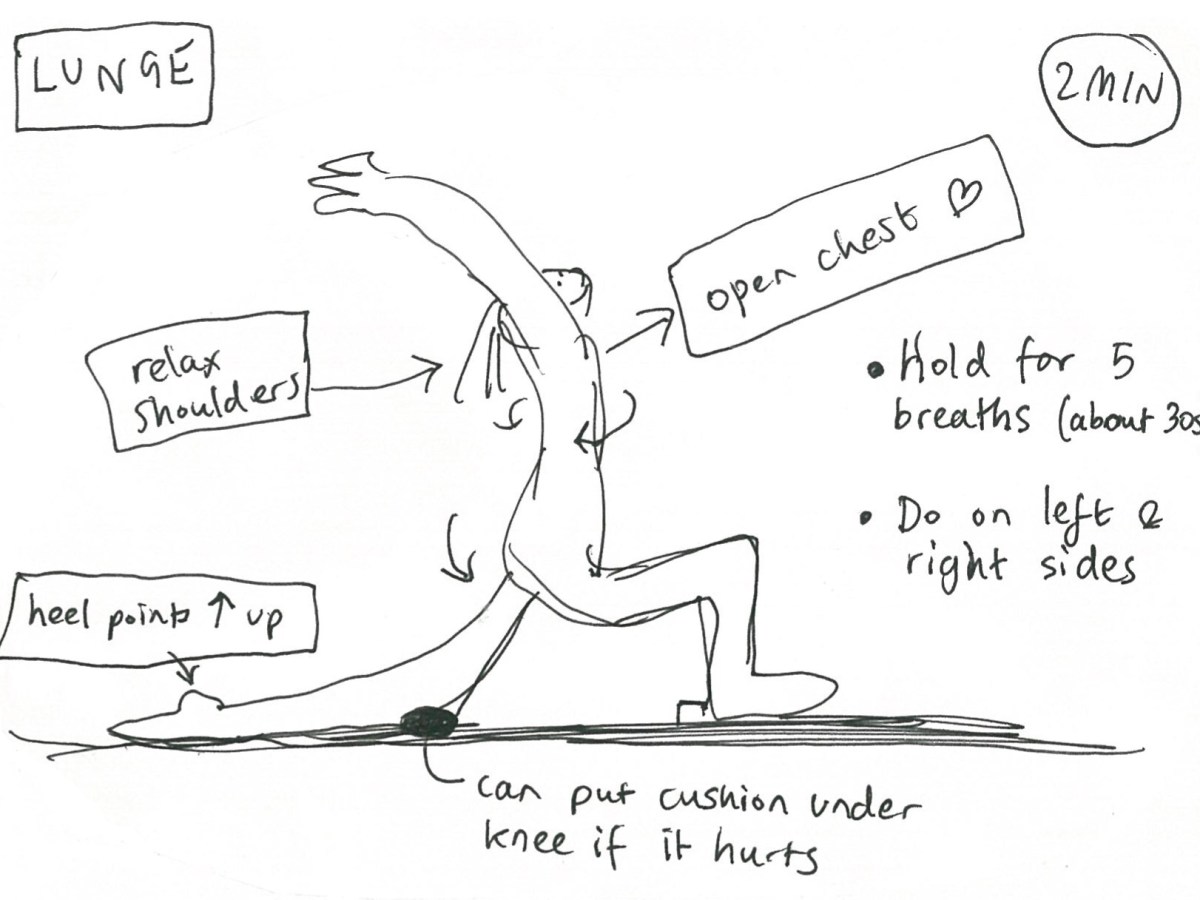 LUNGE
2 MIN
open chest ♡
relax
shoulders
• Hold for 5
breaths (about 30s
• Do on left &
right sides
heel points ↑ up
can put cushion under
knee if it hurts